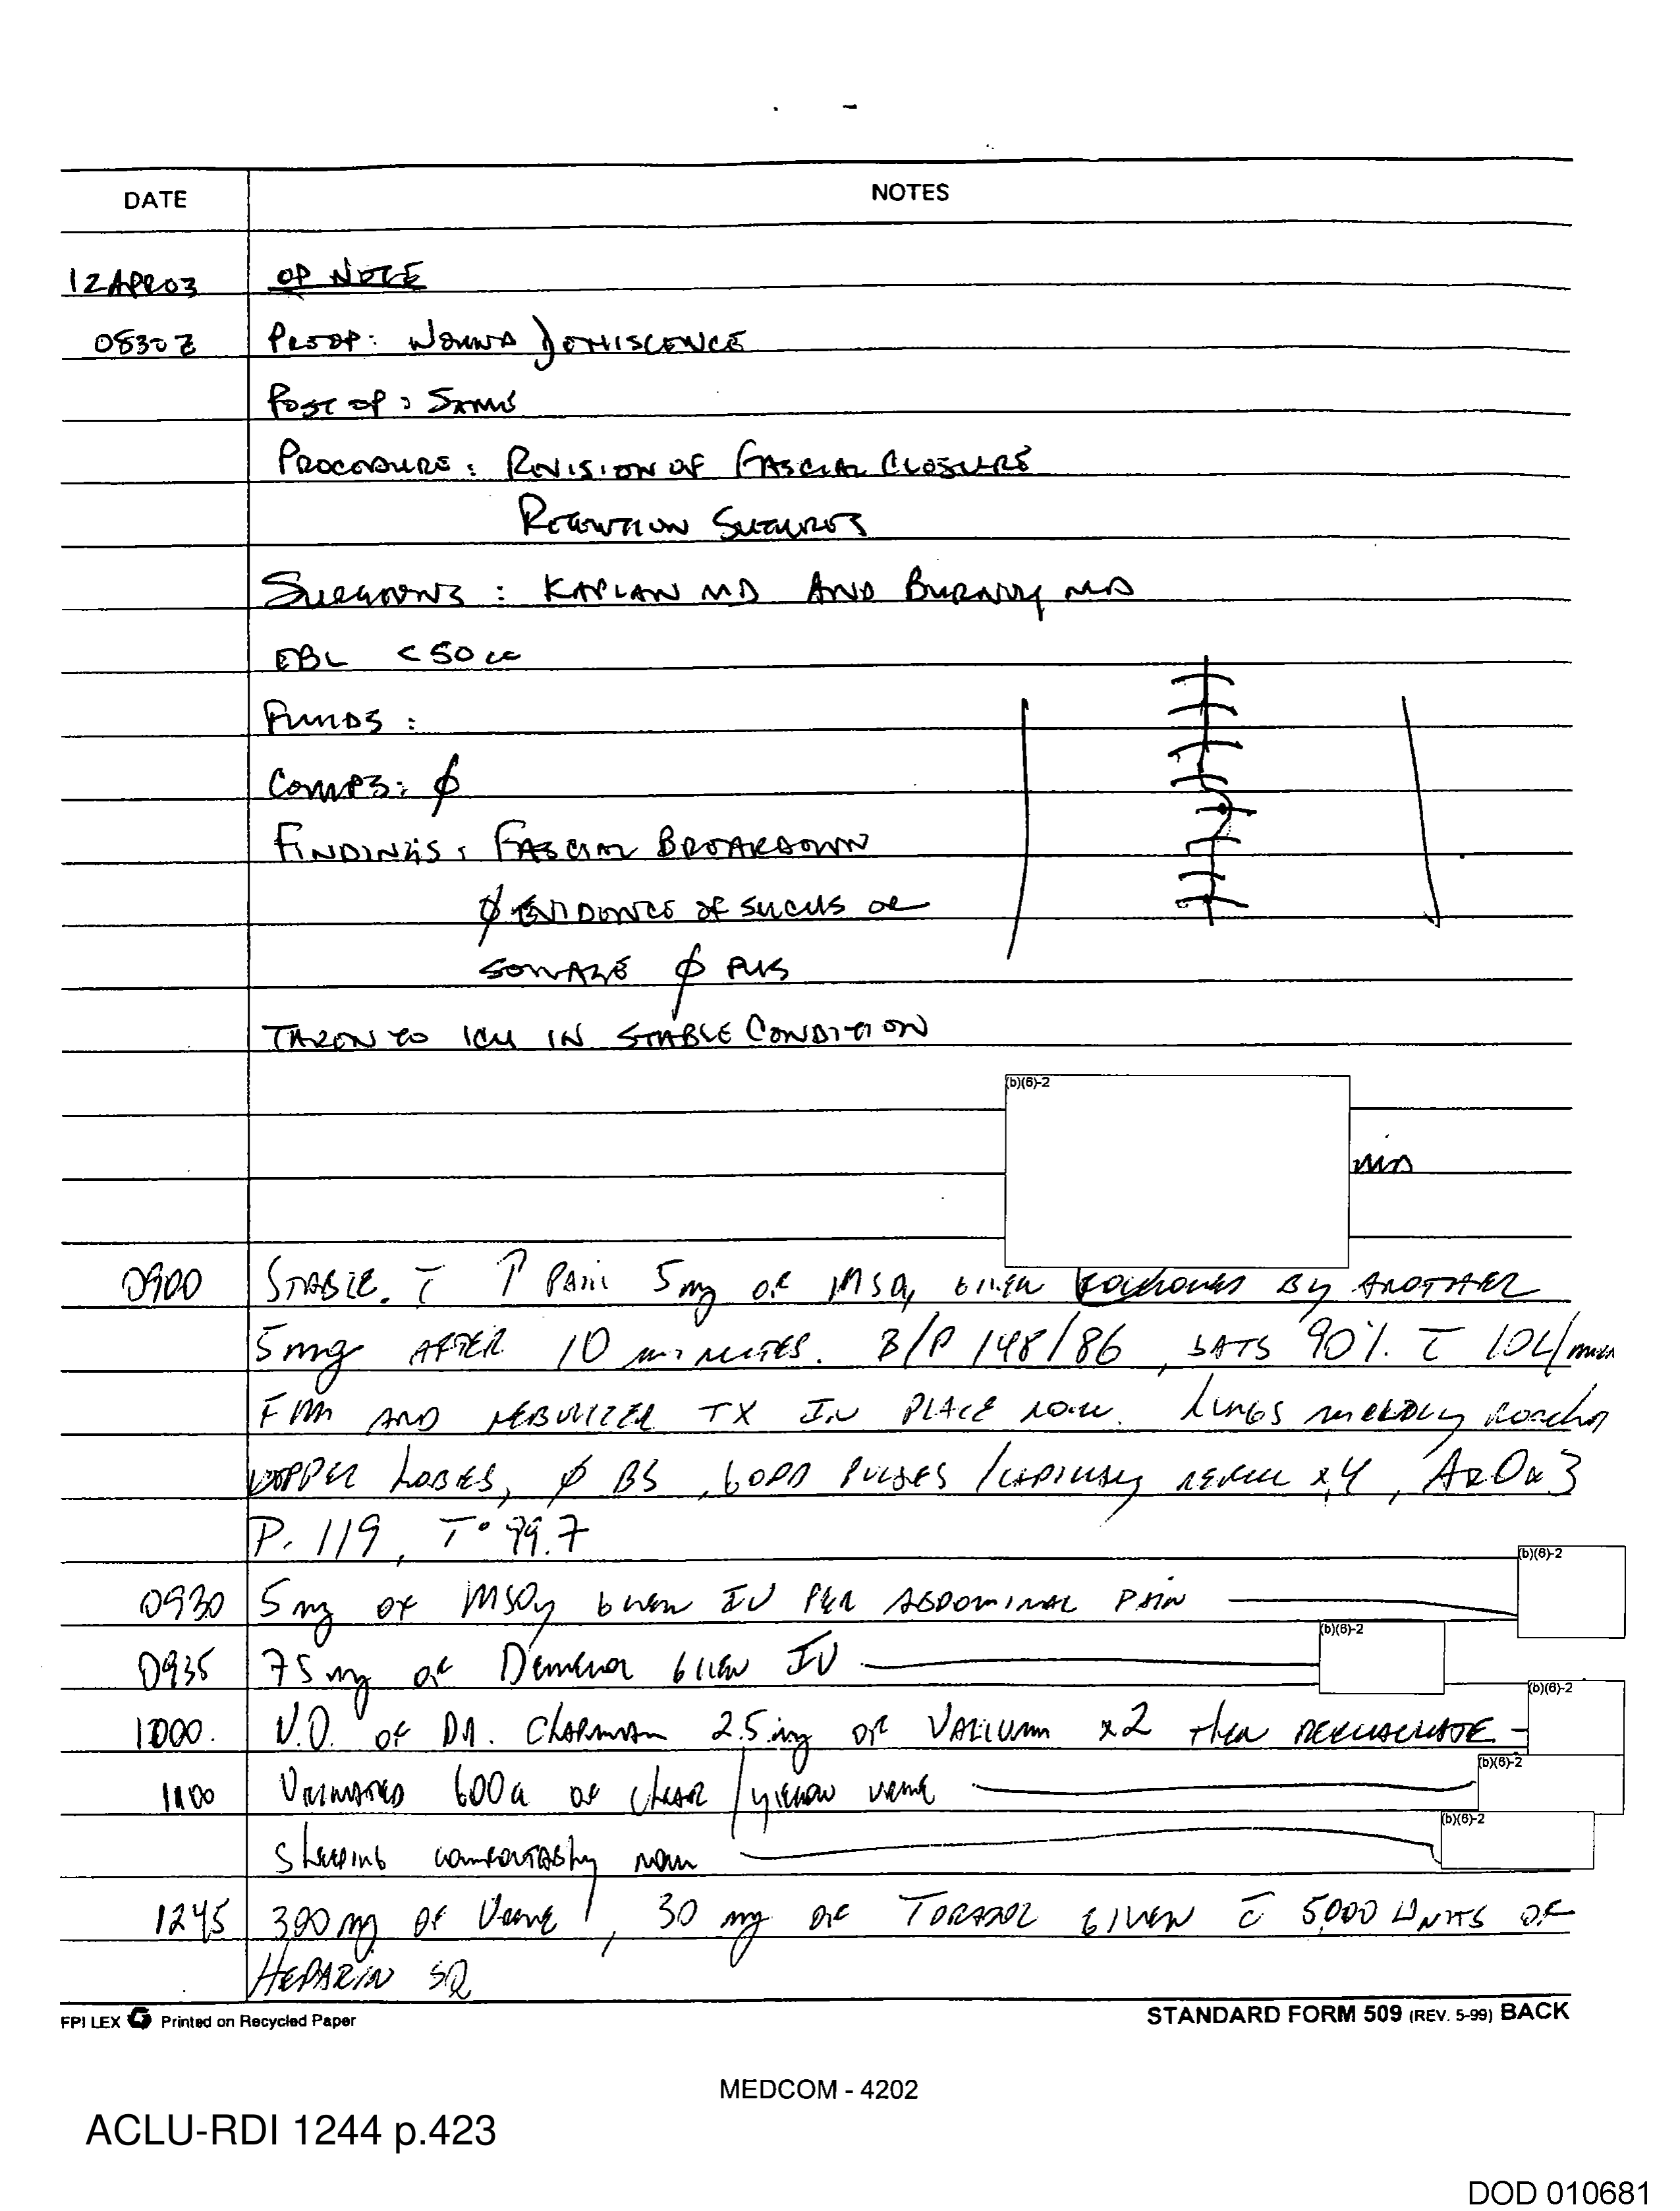 DATE NOTES
12APR03 OP NOTE
0830Z PREOP: WOUND DEHISCENCE
POST OP: SAME
PROCEDURE: REVISION OF FASCIAL CLOSURE
RETENTION SUTURES
SURGEONS: KAPLAN MD AND BURNEY MD
EBL <50 cc
FLUIDS:
COMPS: ∅
FINDINGS: FASCIAL BREAKDOWN
∅ EVIDENCE OF SUCUS OR
SEWAGE ∅ PUS
TAKEN TO ICU IN STABLE CONDITION
(b)(6)-2
MD
0900 STABLE. c̄ ↑ PAIN 5mg OF MSO4 GIVEN FOLLOWED BY ANOTHER
5mg AFTER 10 MINUTES. B/P 148/86, SATS 90% c̄ 10L/min
FM AND NEBULIZER TX IN PLACE NOW. LUNGS
UPPER LOBES, ∅ BS, GOOD PULSES / CAPILLARY REFILL x4, AxOx3
P. 119, T° 99.7
(b)(6)-2
0930 5mg OF MSO4 GIVEN IV PER ABDOMINAL PAIN
(b)(6)-2
0935 75mg OF Demerol GIVEN IV
(b)(6)-2
1000. V.O. OF DR. CHAPMAN 2.5mg OF VALIUM x2 then REEVALUATE
(b)(6)-2
1100 URINATED 600cc OF CLEAR/yellow urine
(b)(6)-2
Sleeping comfortably now
1245 300mg OF Urine, 30 mg OF TORADOL GIVEN c̄ 5,000 UNITS OF
HEPARIN SQ
FPI LEX Printed on Recycled Paper STANDARD FORM 509 (REV. 5-99) BACK
MEDCOM - 4202
ACLU-RDI 1244 p.423
DOD 010681